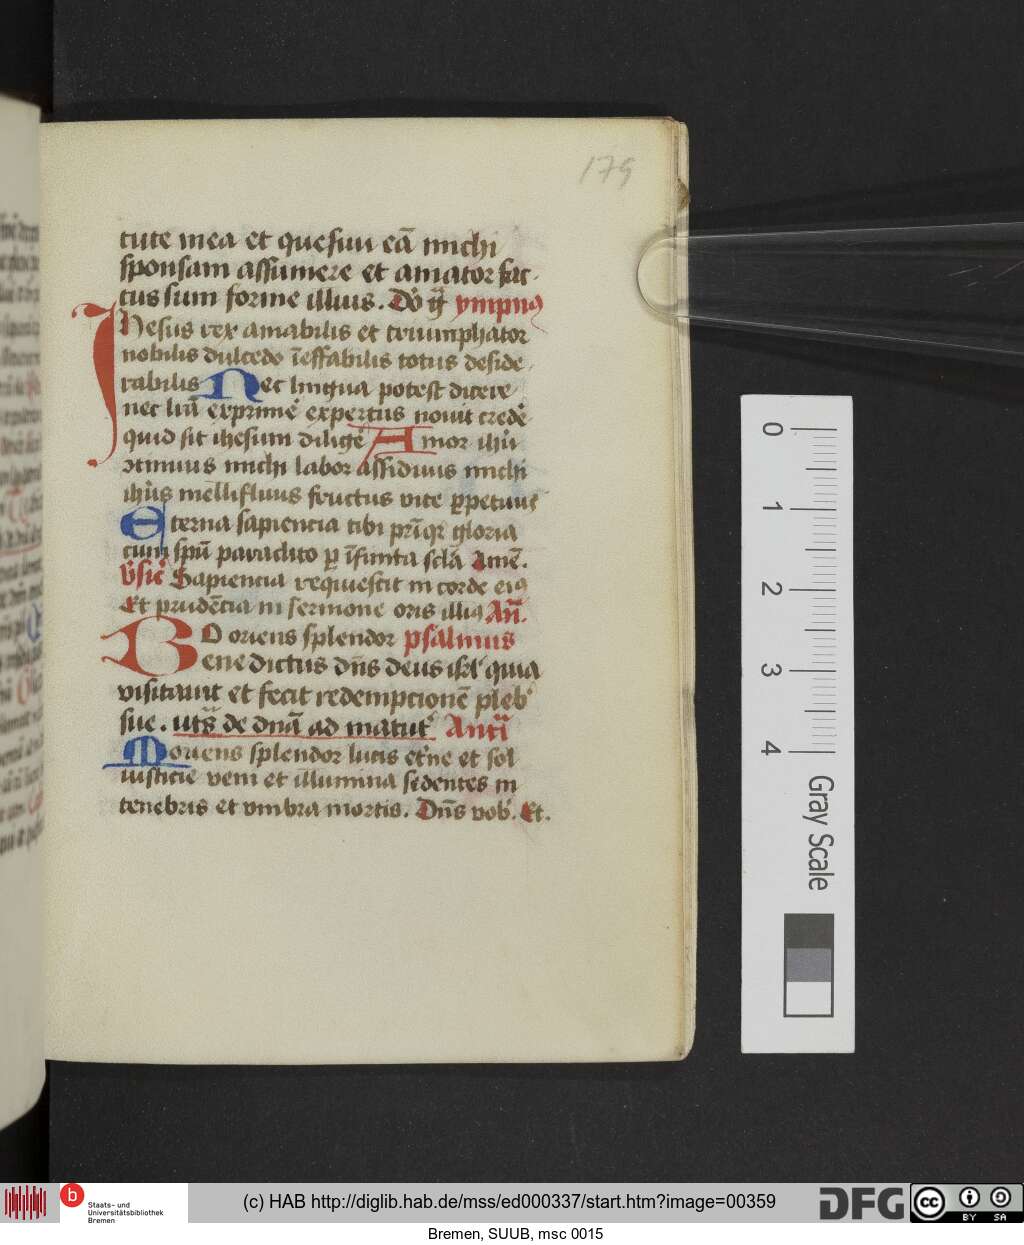 179
tute mea et quesiui eā michi
sponsam assumere et amator fac
tus sum forme illius. Dō gr̄ ympnus
Ihesus rex amabilis et triumphator
nobilis dulcedo īeffabilis totus deside
rabilis Nec lingua potest dicere
nec lr̄a exprimē expertus nouit credē
quid sit ihesum diligē Amor ihū
ↄtinuus michi labor assiduus michi
ihūs mellifluus fructus vite ꝑpetuus
Eterna sapiencia tibi prīqꝫ gloria
cum spū paraclito ꝑ īfinita sclā Amē.
v̄sic̄ Sapiencia requiescit in corde eiꝰ
Et prudēcia in sermone oris illiꝰ An̄.
BO oriens splendor psalmus
Benedictus dn̄s deus isrl̄ quia
visitauit et fecit redempcionē pleb̄
sue. ut sꝫ de dnā ad matut̄ Antī
O oriens splendor lucis et̄ne et sol
iusticie veni et illumina sedentes in
tenebris et vmbra mortis. Dn̄s vob̄. Et.
0
1
2
3
4
Gray Scale
b
Staats- und
Universitätsbibliothek
Bremen
(c) HAB http://diglib.hab.de/mss/ed000337/start.htm?image=00359
DFG
cc BY SA
Bremen, SUUB, msc 0015